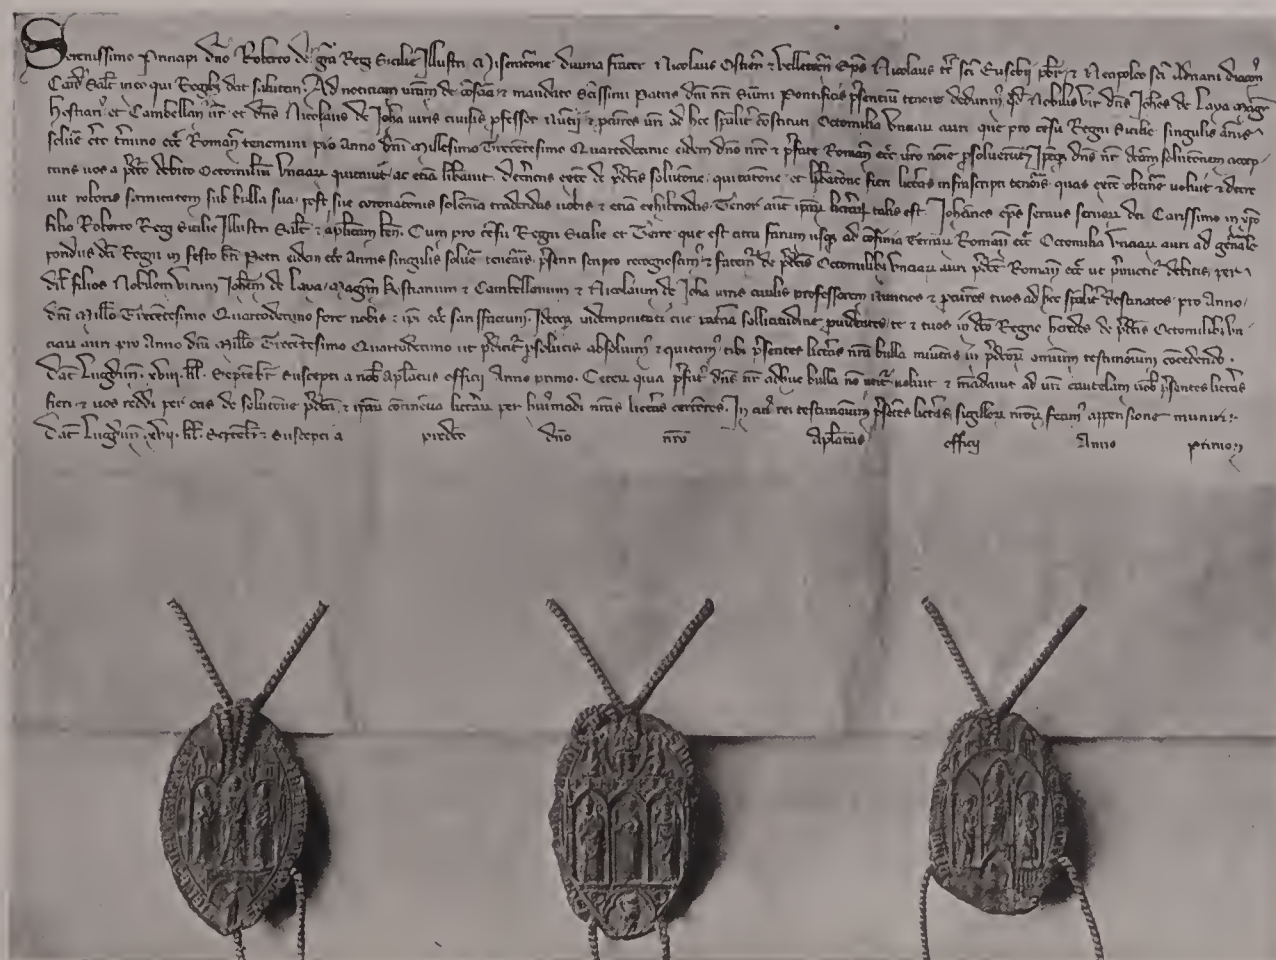 Serenissimo Principi dño Roberto dei grã Regi Sicilie Illustri Miseratione divina frater Nicolaus Ostieñ & Velletreñ Eps Nicolaus tt sci Eusebij pbr & Neapoleo sci Adriani diacoñ
Card Salt in eo qui Regibȝ dat salutem. Ad noticiam vrãm de cõscia & mandato Scissimi Patris dni nri Sũmi Pontificis p̃sentium tenore deducimꝰ qd Nobilis vir dñs Johes de Laya Magr
hostiariꝰ et Cambellanꝰ vr et dñs Nicolaus de Joha iuris civilis p̃fessor Nũtij & p̃cures vri ad hec sp̃alit̃ cõstituti Octomilia Vnciaȝ auri que pro cẽsu Regni Sicilie singulis ãnis
solvẽ eccẽ Romañ tenemini pro Anno dñi Millesimo Trecẽtesimo Quartodecimo eidem dño nro & p̃fate Romañ ecce vro noĩe p̃solverũt dñs nr dcam solutionem accep
tans vos a p̃dco debito Octomiliũ Vnciaȝ quietavit ac etiã lib̃avit. de p̃dictis solutiõne quitatiõne et lib̃atiõne fieri litẽas infrascripti tenoris quas voluit
roboris firmitatem sub bulla sua post sue coronatiõnis solẽnia tradendas vobis & etiã exhibendas. Tenor aut̃ ip̃aȝ lit̃aȝ talis est. Johãnes eps servus servoȝ dei Carissimo in xp̃o
filio Roberto Regi Sicilie Illustri Salt & ap̃licam ben̄. Cum pro cẽsu Regni Sicilie et Terre que est citra farum usqȝ ad cõfinia Terraȝ Romañ ecce Octomilia Vnciaȝ auri ad gñale
pondus dci Regni in festo bti Petri eidem ecce Annis singulis solvẽ tenearis p̃senti scripto recognoscimꝰ & fatemꝰ de p̃dictis Octomilibȝ Vnciaȝ auri p̃dce Romañ ecce ut p̃mittit̃ debitis per
dil filios Nobilem virum Johẽm de Laya Magrm hostiarium & Cambellanum & Nicolaum de Joha iuris civilis professorem Nuncios & p̃cures tuos ad hec sp̃alit̃ destinatos pro Anno
dñi Millo Trecẽtesimo Quartodecimo fore nobis & ip̃i ecce satisfactum. Idcirco sollicitudine providentes te & tuos in dco Regno heredes de p̃dictis Octomilibȝ Vn
ciaȝ auri pro Anno dñi Millo Trecẽtesimo Quartodecimo ut p̃dicit̃ p̃solutis absolvimꝰ & quitamꝰ tibi p̃sentes litẽas nrã bulla munitas in p̃dcoȝ omnium testimonium cõcedendo.
Dat̃ Lugduñ. xviii. kl. Septembr suscepti a nob ap̃latus officij Anno primo. Ceterȝ quia p̃fatꝰ dñs nr adhuc bulla nõ utit̃ voluit & mãdavit ad vrã cautelam vob p̃sentes litẽas
fieri & vos reddi per eas de solutiõne p̃dcã & ip̃aȝ cõtinẽtia lit̃aȝ per huiusmodi nras litẽas certiores. In cuiꝰ rei testimonium p̃sẽtes litẽas sigilloȝ nroȝ fecimꝰ appensione muniri.
Dat̃ Lugduñ. xvii. kl. Septembr suscepti a predicto dño nro ap̃latus officij Anno primo